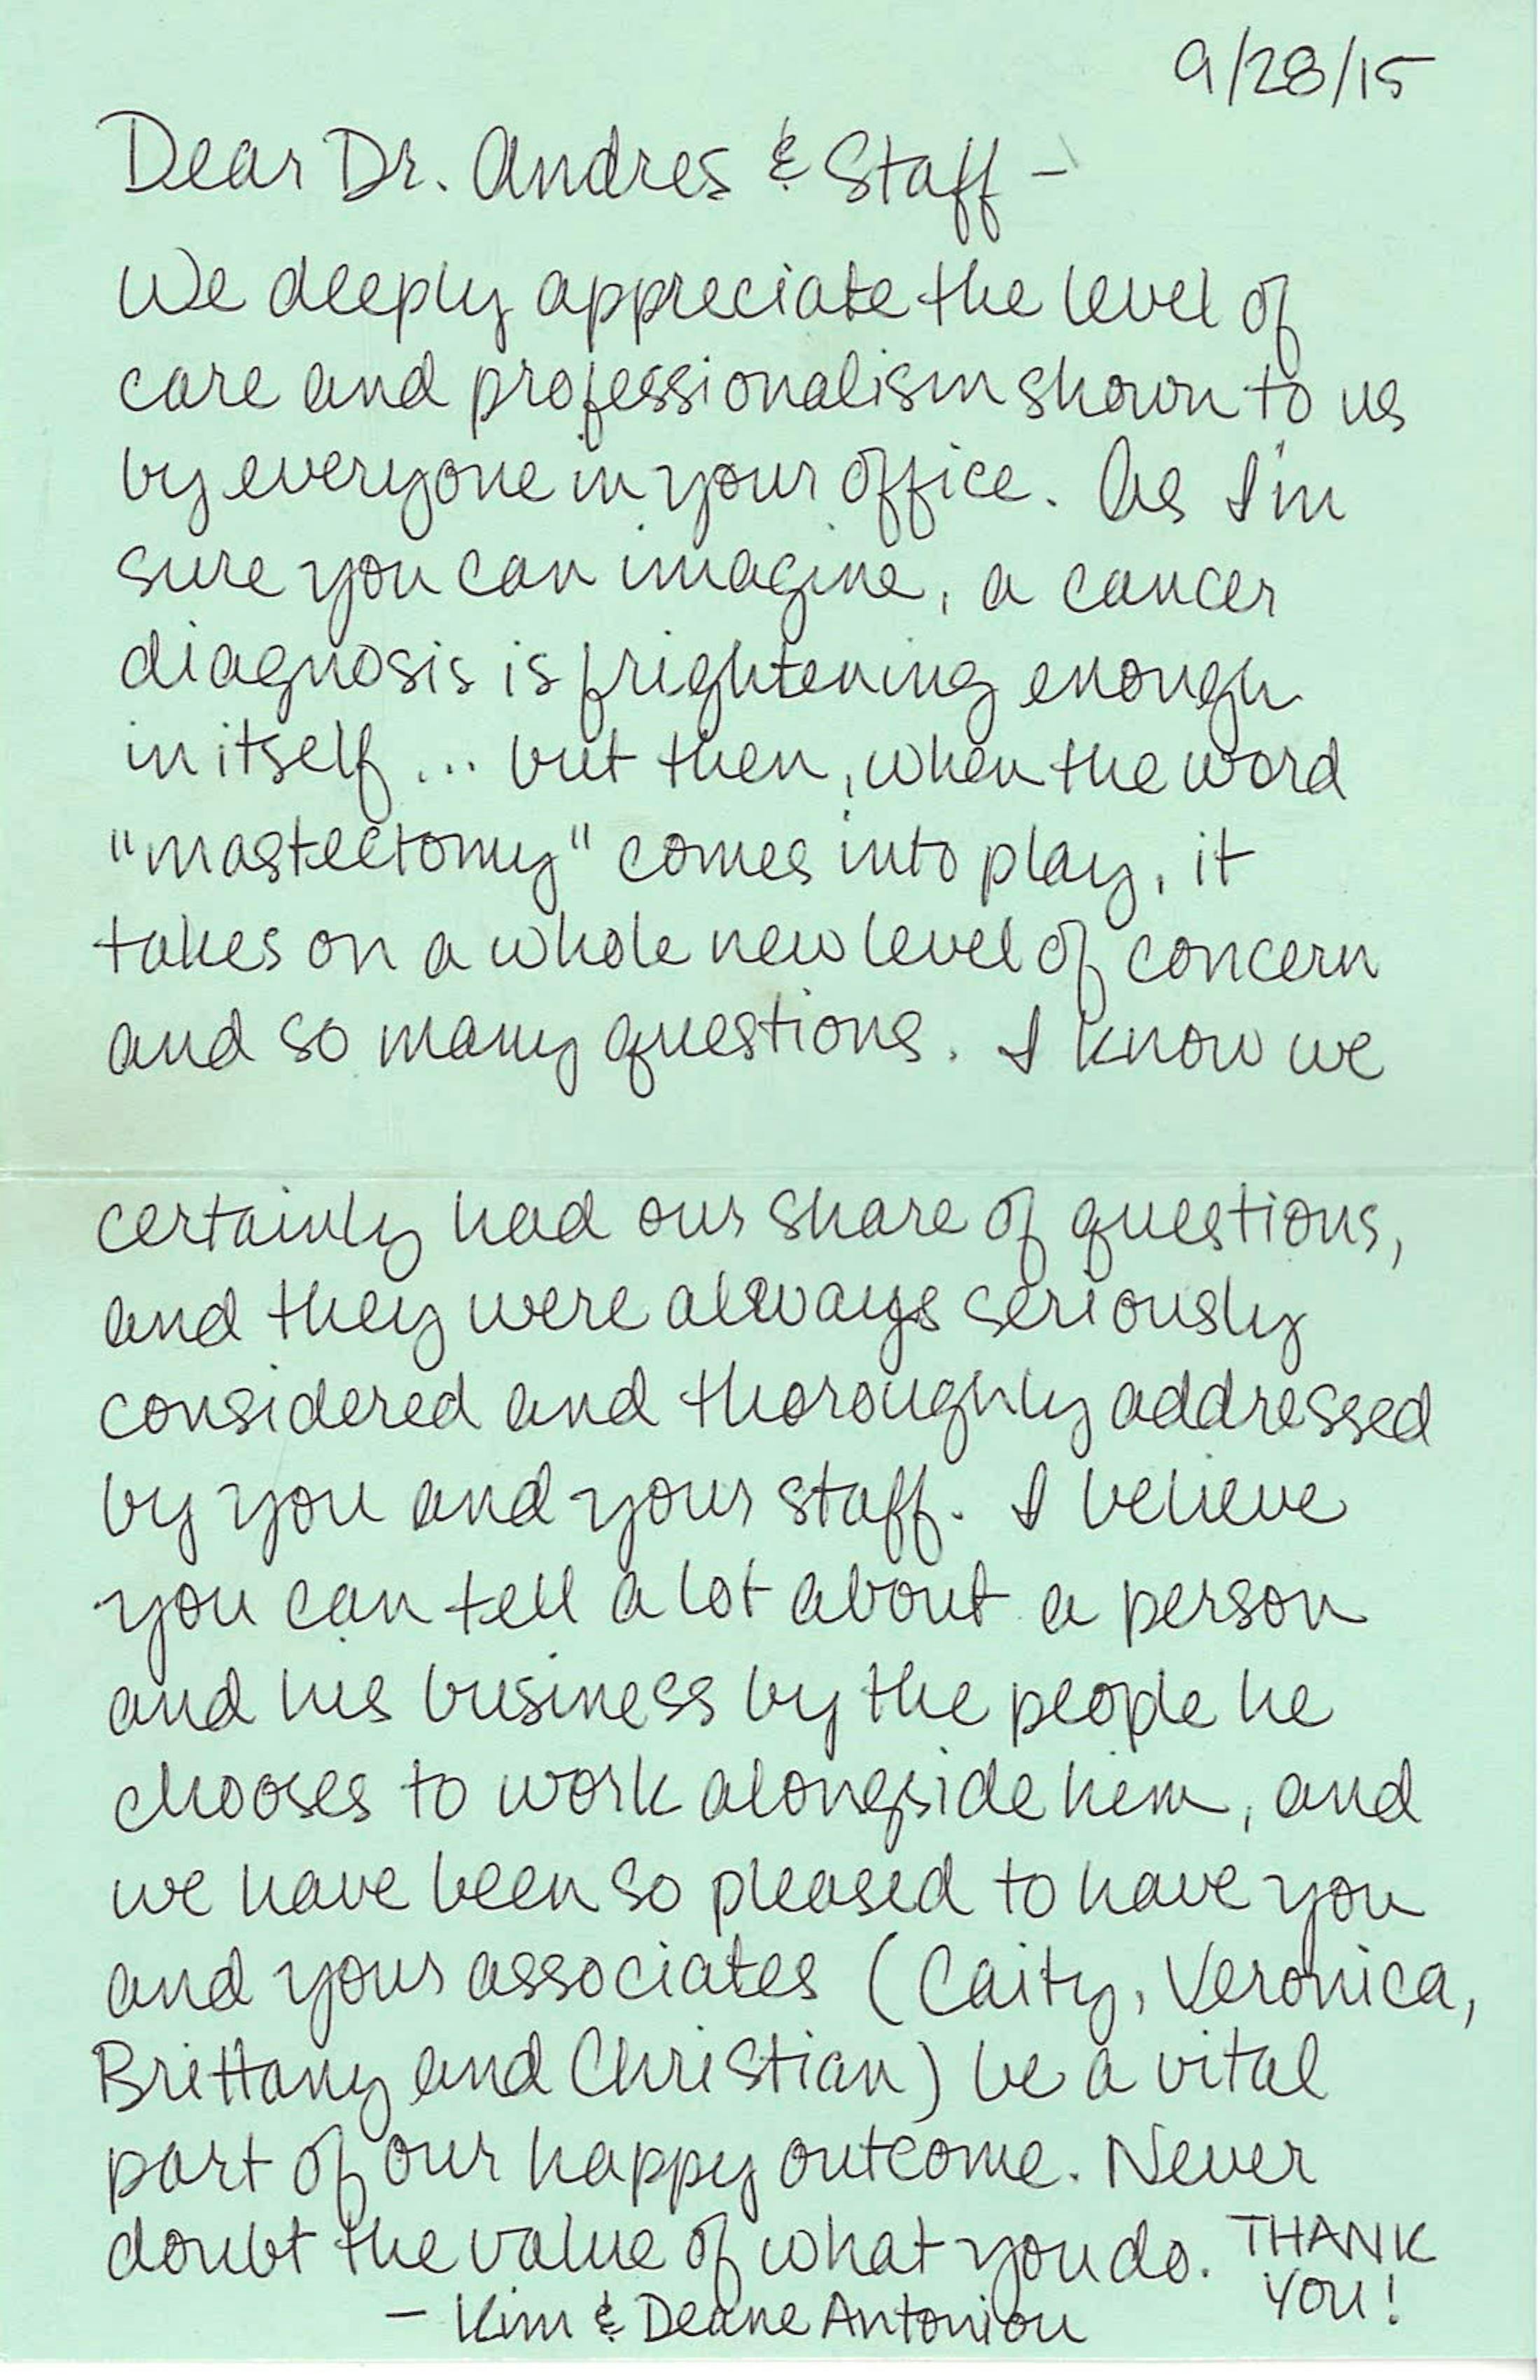 9/28/15
Dear Dr. Andres & Staff -
We deeply appreciate the level of
care and professionalism shown to us
by everyone in your office. As I'm
sure you can imagine, a cancer
diagnosis is frightening enough
in itself... but then, when the word
"mastectomy" comes into play, it
takes on a whole new level of concern
and so many questions. I know we
certainly had our share of questions,
and they were always seriously
considered and thoroughly addressed
by you and your staff. I believe
you can tell a lot about a person
and his business by the people he
chooses to work alongside him, and
we have been so pleased to have you
and your associates (Caity, Veronica,
Brittany and Christian) be a vital
part of our happy outcome. Never
doubt the value of what you do. THANK
YOU!
- Kim & Deane Antoniou